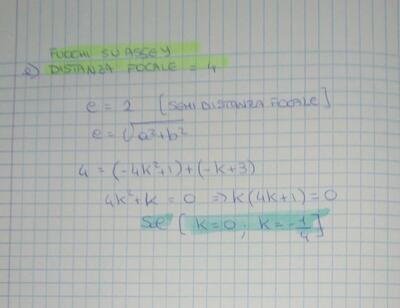 FUOCHI SU ASSE Y
e) DISTANZA FOCALE = 4
e = 2 [SEMIDISTANZA FOCALE]
e = √a²+b²
4 = (-4k²+1)+(-k+3)
4k²+k = 0 => k(4k+1) = 0
Sol [k=0 ; k=-1/4]